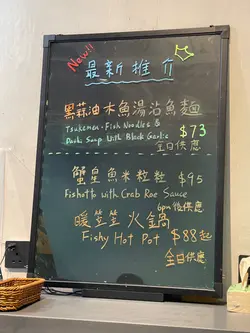 New!!
最新推介
黑蒜油木魚湯沾魚麵
Tsukemen-Fish Noodles &
Dashi Soup With Black Garlic $73
全日供應
蟹皇魚米粒粒 $95
Fishotto with Crab Roe Sauce
6pm後供應
暖笠笠火鍋
Fishy Hot Pot $88起
全日供應